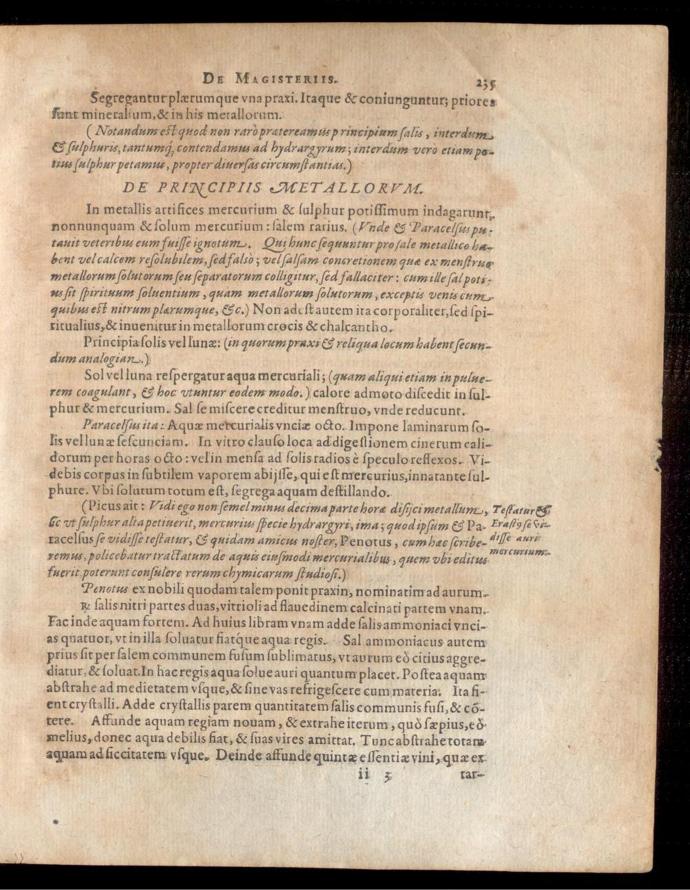 DE MAGISTERIIS. 235
Segregantur plærumque vna praxi. Itaque & coniunguntur; priores
sunt mineralium, & in his metallorum.
( Notandum est quod non rarò prætereamus principium salis, interdum
& sulphuris, tantumq́, contendamus ad hydrargyrum; interdum vero etiam po-
tius sulphur petamus, propter diuersas circumstantias.)
DE PRINCIPIIS METALLORVM.
In metallis artifices mercurium & sulphur potissimum indagarunt,
nonnunquam & solum mercurium: salem rarius. (Vnde & Paracelsus pu-
tauit veteribus eum fuisse ignotum. Qui hunc sequuntur pro sale metallico ha-
bent vel calcem resolubilem, sed falsò; vel salsam concretionem quæ ex menstruo
metallorum solutorum seu separatorum colligitur, sed fallaciter: cum ille sal poti-
us sit spirituum soluentium, quam metallorum solutorum, exceptis venis cum
quibus est nitrum plærumque, &c.) Non adest autem ita corporaliter, sed spi-
ritualius, & inuenitur in metallorum crocis & chalcantho.
Principia solis vel lunæ: (in quorum praxi & reliqua locum habent secun-
dum analogian.)
Sol vel luna respergatur aqua mercuriali; (quam aliqui etiam in pulue-
rem coagulant, & hoc vtuntur eodem modo.) calore admoto discedit in sul-
phur & mercurium. Sal se miscere creditur menstruo, vnde reducunt.
Paracelsus ita: Aquæ mercurialis vnciæ octo. Impone laminarum so-
lis vel lunæ sescunciam. In vitro clauso loca ad digestionem cinerum cali-
dorum per horas octo: vel in mensa ad solis radios è speculo reflexos. Vi-
debis corpus in subtilem vaporem abijsse, qui est mercurius, innatante sul-
phure. Vbi solutum totum est, segrega aquam destillando.
(Picus ait: Vidi ego non semel minus decima parte horæ disijci metallum,
sic vt sulphur alta petiuerit, mercurius specie hydrargyri, ima; quod ipsum & Pa-
racelsus se vidisse testatur, & quidam amicus noster, Penotus, cum hæc scribe-
remus, policebatur tractatum de aquis eiusmodi mercurialibus, quem vbi editus
fuerit poterunt consulere rerum chymicarum studiosi.)
Testatur &
Erastus se vi-
disse auri
mercurium.
Penotus ex nobili quodam talem ponit praxin, nominatim ad aurum.
℞ salis nitri partes duas, vitrioli ad flauedinem calcinati partem vnam.
Fac inde aquam fortem. Ad huius libram vnam adde salis ammoniaci vnci-
as quatuor, vt in illa soluatur fiatque aqua regis. Sal ammoniacus autem
prius sit per salem communem fusum sublimatus, vt aurum eò citius aggre-
diatur, & soluat. In hac regis aqua solue auri quantum placet. Postea aquam
abstrahe ad medietatem vsque, & sine vas refrigescere cum materia. Ita fi-
ent crystalli. Adde crystallis parem quantitatem salis communis fusi, & cō-
tere. Affunde aquam regiam nouam, & extrahe iterum, quò sæpius, eò
melius, donec aqua debilis fiat, & suas vires amittat. Tunc abstrahe totam
aquam ad siccitatem vsque. Deinde affunde quintæ essentiæ vini, quæ ex
ii 3 tar-